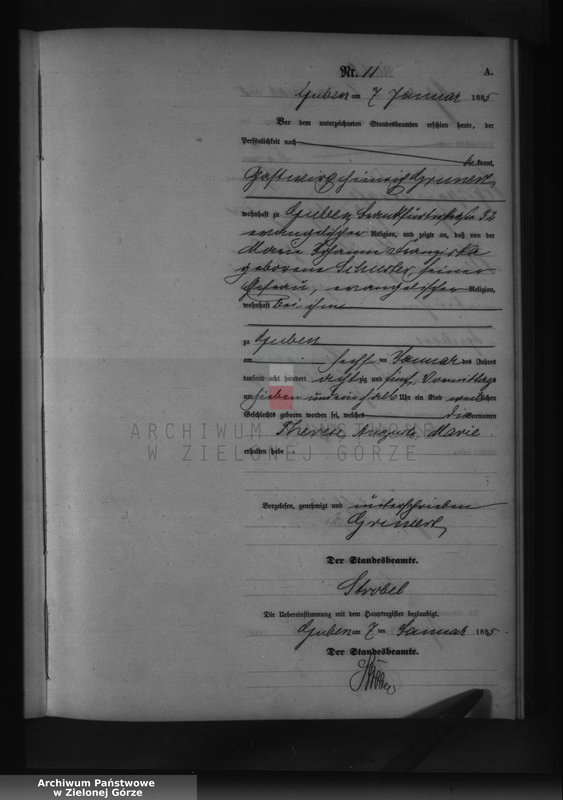 Nr. 11
A.
Guben am 7 Januar 1885
Vor dem unterzeichneten Standesbeamten erschien heute, der
Persönlichkeit nach
bekannt,
Gastwirth Heinrich Grunert,
wohnhaft zu Guben, Frankfurterstraße 32
evangelischer Religion, und zeigte an, daß von der
Marie Johanne Franziska
geborene Schuster seiner
Ehefrau, evangelischer Religion,
wohnhaft bei ihm
zu Guben
am sechs ten Januar des Jahres
tausend acht hundert achtzig und fünf, Vormittags
um sieben und ein halb Uhr ein Kind weiblichen
Geschlechts geboren worden sei, welches die Vornamen
Therese, Auguste, Marie
erhalten habe
ARCHIWUM PAŃSTWOWE
W ZIELONEJ GÓRZE
Vorgelesen, genehmigt und unterschrieben
Grunert,
Der Standesbeamte.
Strobel
Die Uebereinstimmung mit dem Hauptregister beglaubigt.
Guben am 7 ten Januar 1885
Der Standesbeamte.
Strobel
Archiwum Państwowe
w Zielonej Górze